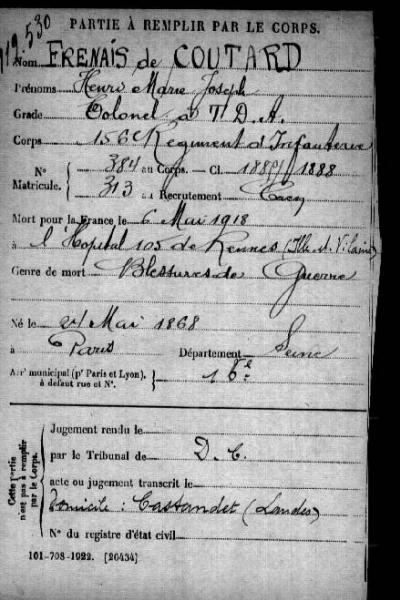 PARTIE À REMPLIR PAR LE CORPS.
Nom FRENAIS de COUTARD
Prénoms Henri Marie Joseph
Grade Colonel à T. D. A.
Corps 156e Régiment d'Infanterie
N° Matricule. 384 au Corps. — Cl. 1889/1888
313 au Recrutement Caen
Mort pour la France le 6 Mai 1918
à l'Hôpital 103 de Rennes (Ille et Vilaine)
Genre de mort Blessures de Guerre
Né le 21 Mai 1868
à Paris Département Seine
Arrt municipal (pr Paris et Lyon), à défaut rue et N°. 16e
Cette partie n'est pas à remplir par le Corps.
Jugement rendu le
par le Tribunal de D. C.
acte ou jugement transcrit le
Domicile : Castandet (Landes)
N° du registre d'état civil
101-708-1922. [26434]